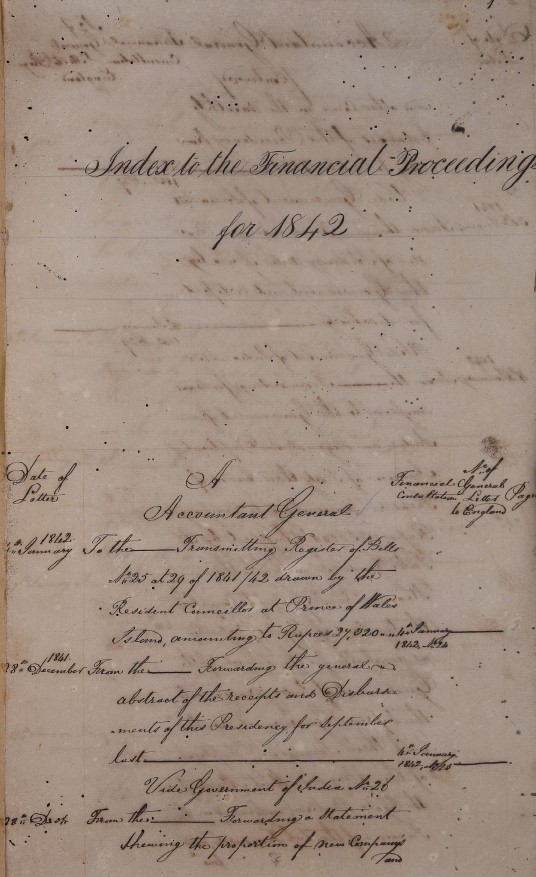 Index to the Financial Proceedings
for 1842
Date of Letter
A
Financial Consultation
No. of General Letter to England
Page
Accountant General
1842
January To the — Transmitting Register of Bills
No. 25 at 29 of 1841/42 drawn by the
Resident Councillor at Prince of Wales
Island, amounting to Rupees 27,320 4th January
1842, No.
1841
28th December From the — Forwarding the general
abstract of the receipts and Disburse
-ments of this Presidency for September
last — 4th January
1842, No. 25
Vide Government of India No. 26
28th Do From the — Forwarding a Statement
shewing the proportion of new Company's
and